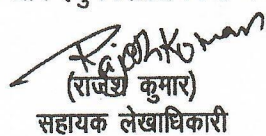 Rajesh Kumar
(राजेश कुमार)
सहायक लेखाधिकारी